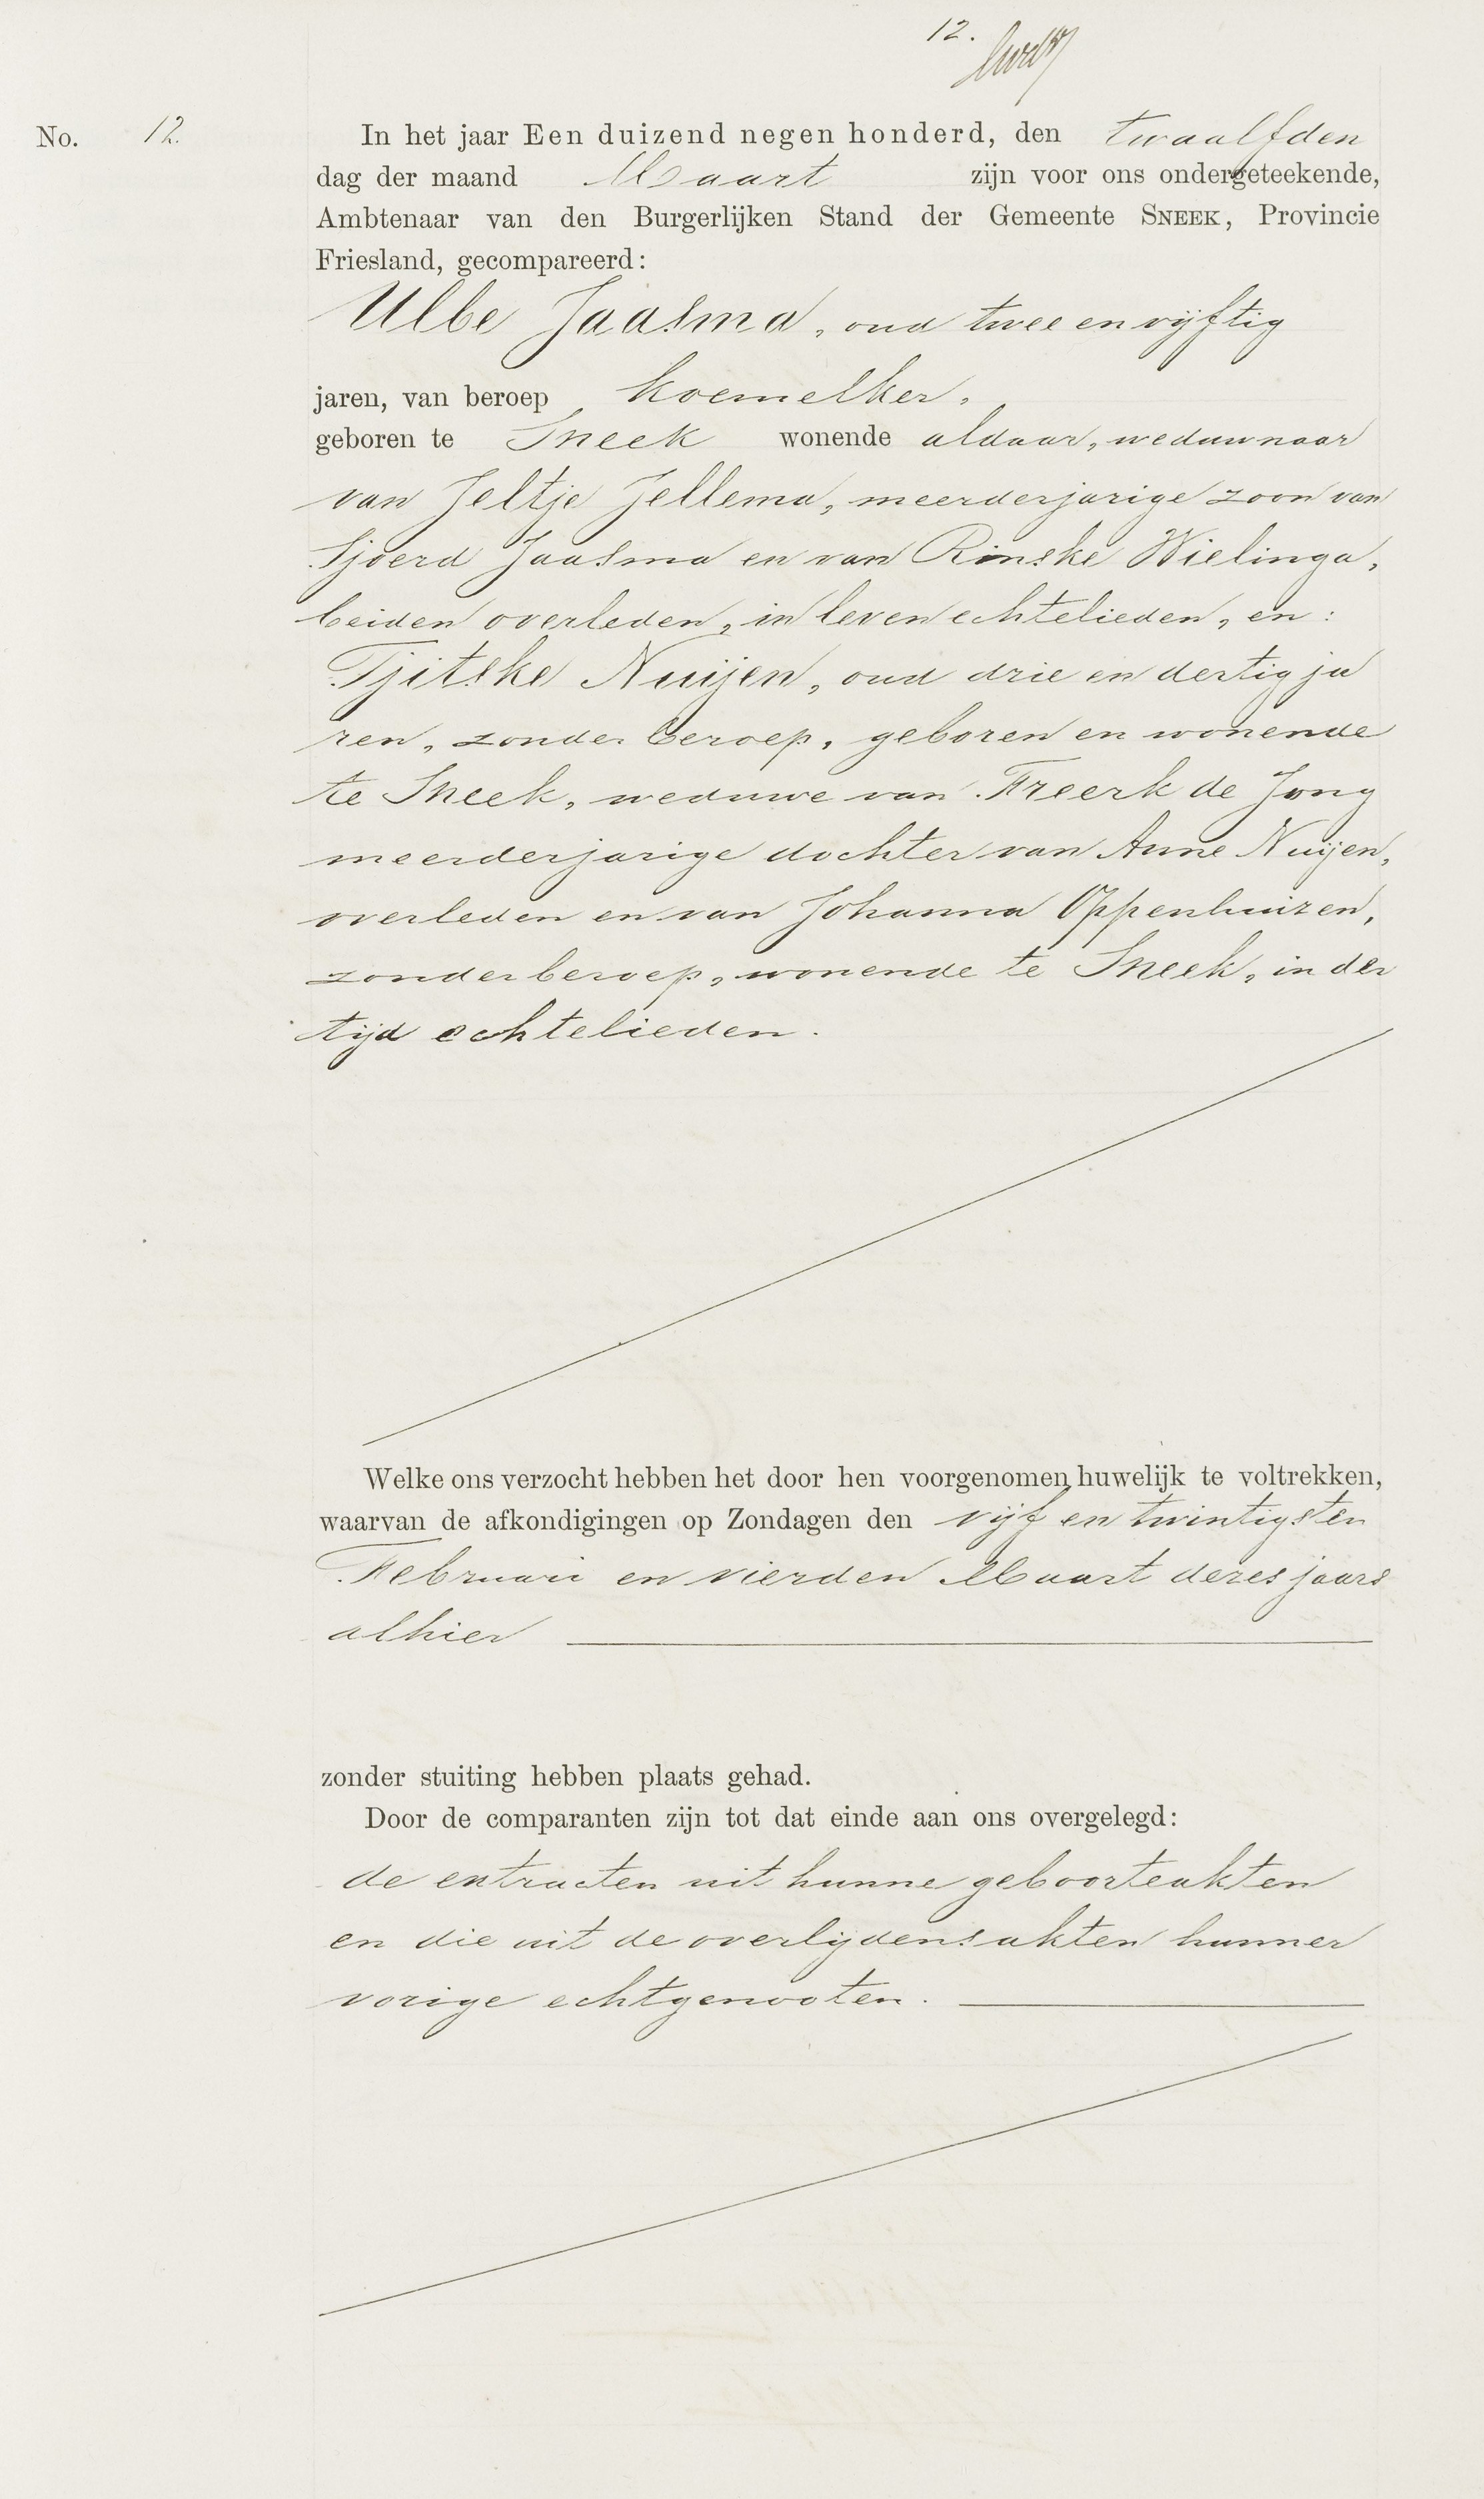 12.
No. 12.
In het jaar Een duizend negen honderd, den twaalfden
dag der maand Maart zijn voor ons ondergeteekende,
Ambtenaar van den Burgerlijken Stand der Gemeente SNEEK, Provincie
Friesland, gecompareerd:
Ulbe Jaasma, oud twee en vijftig
jaren, van beroep koemelker,
geboren te Sneek wonende aldaar, weduwnaar
van Jeltje Jellema, meerderjarige zoon van
Sjoerd Jaasma en van Rinske Wielinga,
beiden overleden, in leven echtelieden, en:
Tjitske Nuijen, oud drie en dertig ja
ren, zonder beroep, geboren en wonende
te Sneek, weduwe van Freerk de Jong
meerderjarige dochter van Anne Nuijen,
overleden en van Johanna Oppenhuizen,
zonder beroep, wonende te Sneek, in der
tijd echtelieden.
Welke ons verzocht hebben het door hen voorgenomen huwelijk te voltrekken,
waarvan de afkondigingen op Zondagen den vijf en twintigsten
Februari en vierden Maart dezes jaars
alhier
zonder stuiting hebben plaats gehad.
Door de comparanten zijn tot dat einde aan ons overgelegd:
de extracten uit hunne geboorteakten
en die uit de overlijdensakten hunner
vorige echtgenooten.